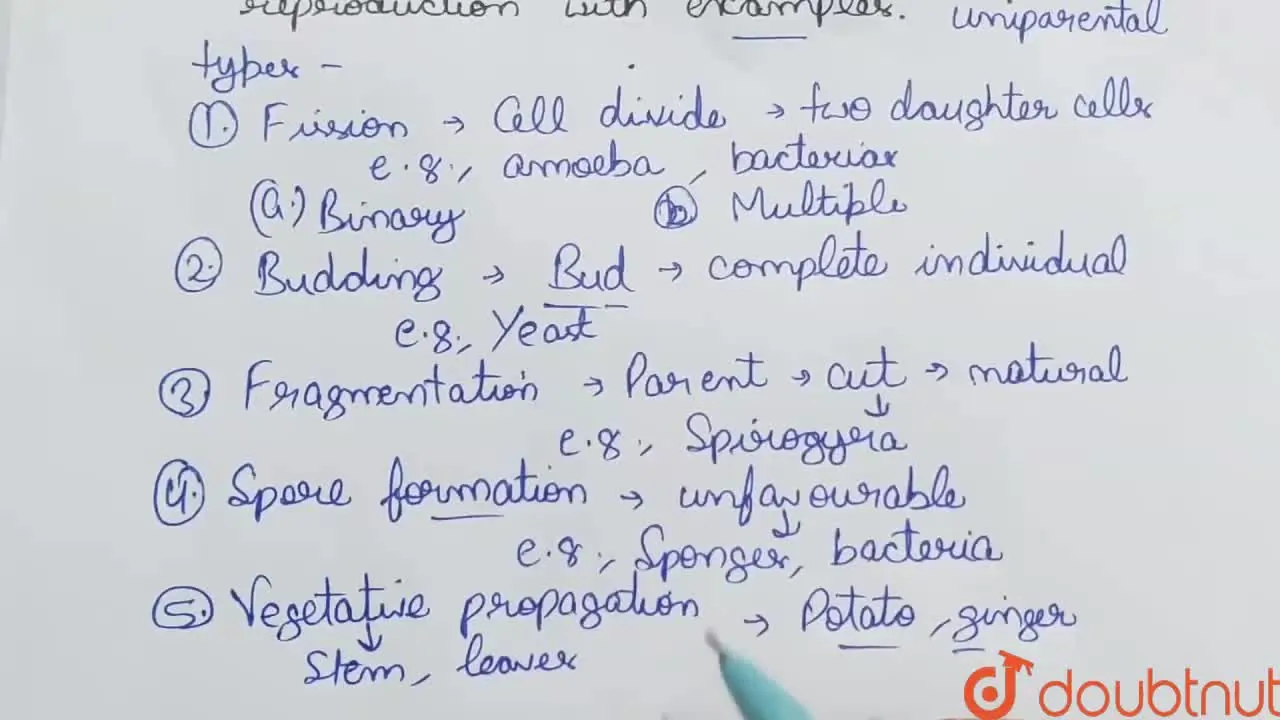 reproduction with examples. uniparental
types -
1. Fission → Cell divide → two daughter cells
e.g., amoeba, bacteria
(a.) Binary (b) Multiple
2. Budding → Bud → complete individual
e.g., Yeast
3. Fragmentation → Parent → cut → natural
↓
e.g., Spirogyra
4. Spore formation → unfavourable
↓
e.g., Sponges, bacteria
5. Vegetative propagation → Potato, ginger
↓
Stem, leaves
doubtnut